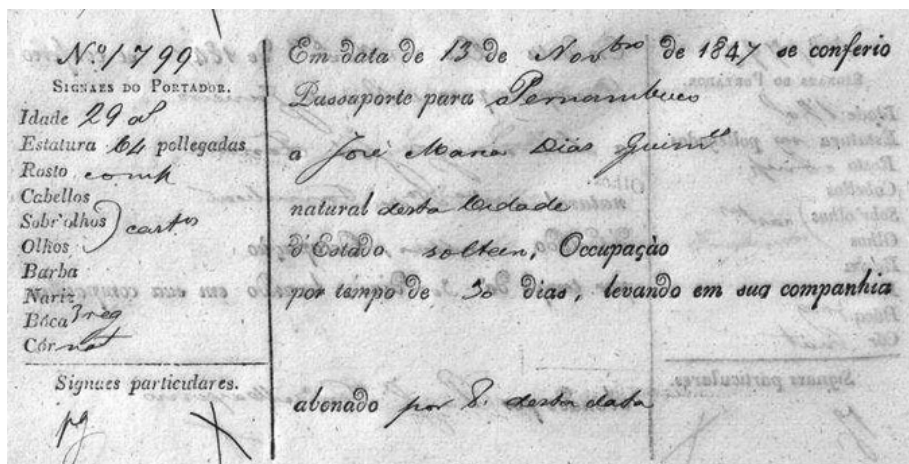 Nº 1799
SIGNAES DO PORTADOR.
Idade 29 aˢ
Estatura 64 pollegadas
Rosto comp
Cabellos
Sobr'olhos castos
Olhos
Barba
Nariz
Bôca 3 reg
Côr nat
Signaes particulares.
pg
Em data de 13 de Novbro de 1847 se conferio
Passaporte para Pernambuco
a José Maria Dias Guimes
natural desta Cidade
d'Estado solteiro, Occupação
por tempo de 30 dias, levando em sua companhia
abonado por T. desta data